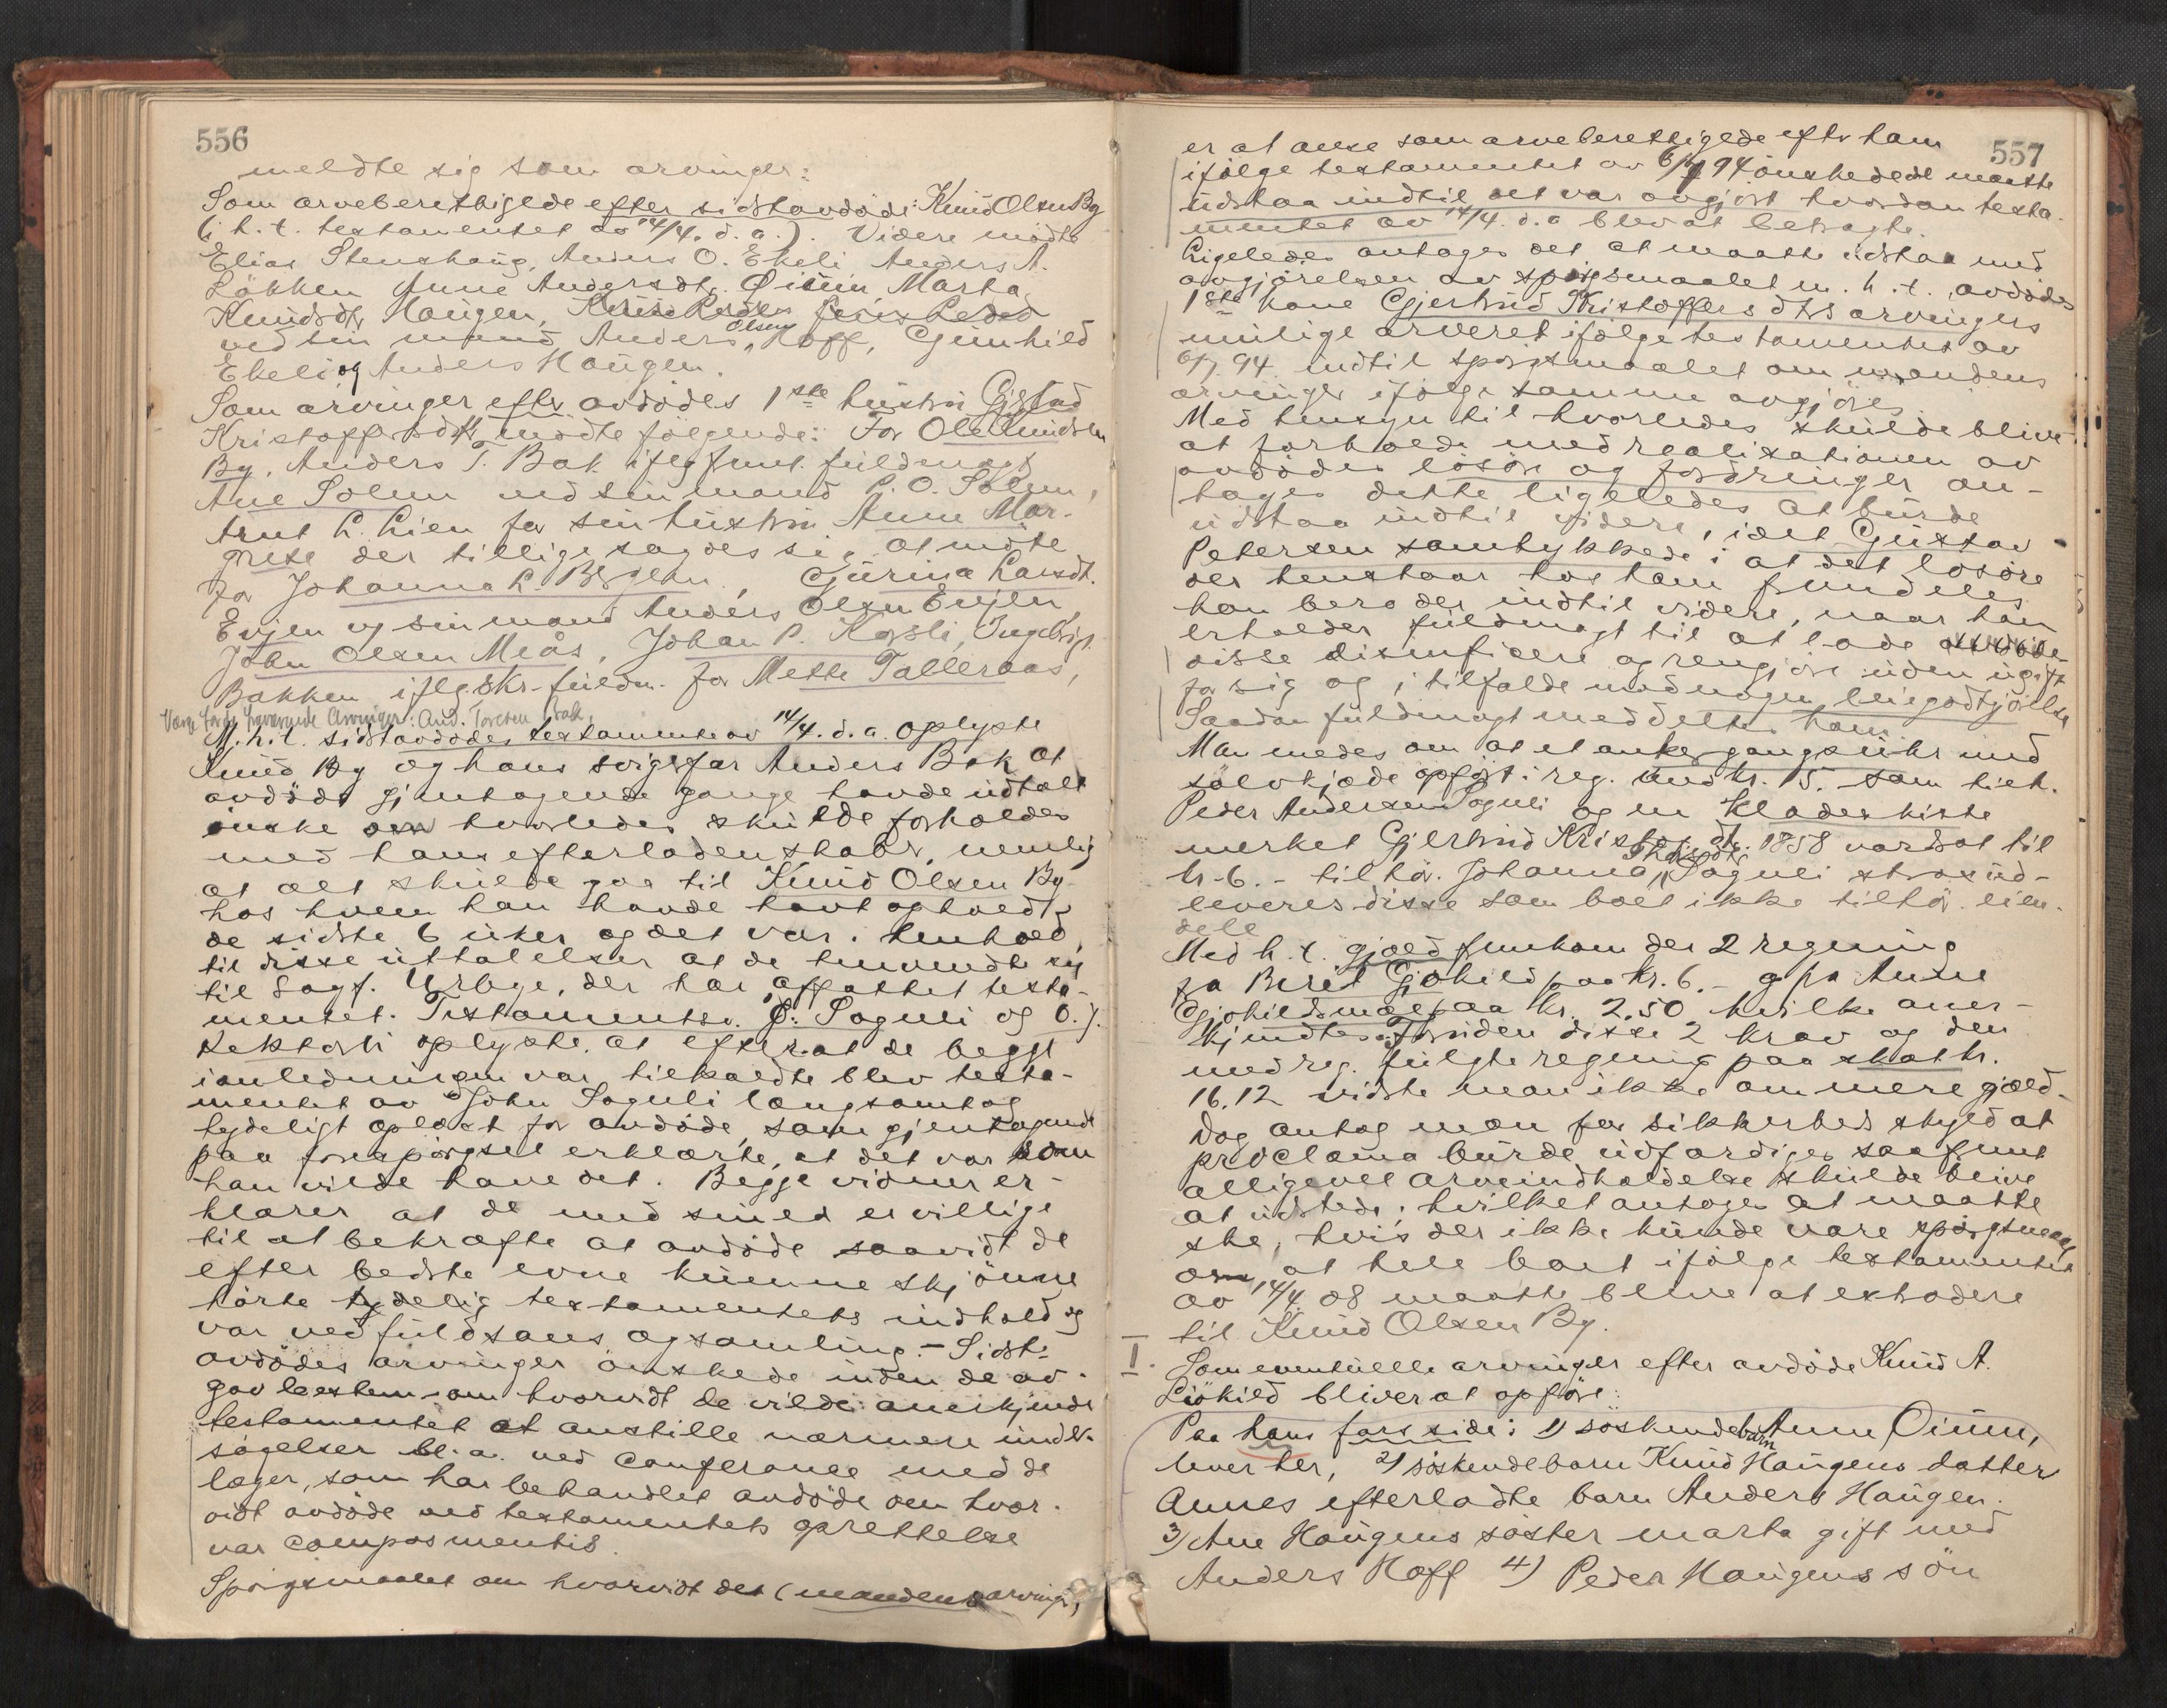 556
meldte sig som arvinger:
Som arveberettigede efter sidstavdöde: Knud Olsen By
(i h. t. testamentet av 14/4. d. a.). Videre mödte
Elias Stenshaug, Anders O. Ekeli Anders A.
Lökken Anne Andersdtr. Öiüm, Marta
Knudsdtr Haugen,
ved sin mand Anders Olsen Hoff, Gunhild
Ekeli og Anders Haugen.
Som arvinger efter avdödes 1ste hustru Gjertrud
Kristoffersdtr mödte fölgende: For Ole Knudsen
By, Anders T. Bak iflg. fuldmagt
Ane Solem ved sin mand P. O. Solem,
Arnt L. Lien for sin hustru Anne Mar-
grete der tillige sagdes sig at möte
for Johanna L. Bergehn, Gurina Larsdt.
Evjen og sin mand Anders Olsen Evjen,
John Olsen Meås, Johan P. Kassli, Ingebrigt
Bakken iflg. skr. fuldm. for Mette Talleraas,
Værge for de fraværende Arvinger: And. Torsten Bak.
M. h. t. sidstavdödes testamente av 14/4. d. a. oplyste
Knud By og hans svigerfar Anders Bak at
avdöde gjentagende gange havde udtalt
önske om hvorledes skulde forholdes
med hans efterladenskaber, nemlig
at alt skulde gaa til Knud Olsen By
hos hvem han havde havt ophold
de sidste 6 uker og det var i henhold
til disse uttalelser at de henvendte sig
til Sagf. Urbye, der har affattet testa-
mentet. Testamentsv. J. Soguli og O. J.
oplyste at efterat de begge
i anledningen var tilkaldte blev testa-
mentet av John Soguli langsomt og
tydeligt oplæst for avdöde, som gjentagende
paa forespörgsel erklærte, at det var sådan
han vilde have det. Begge vidner er-
klærer at de med sin ed er villige
til at bekræfte at avdöde saavidt de
efter bedste evne kunne skjönne
hörte tydelig testamentets indhold og
var ved fuld sans og samling. - Sidst-
avdödes arvinger önskede inden de av-
gav bestem. om hvorvidt de vilde anerkjende
testamentet at anstille nærmere under-
sögelser bl. a. ved conferance med de
læger, som har behandlet avdöde om hvor-
vidt avdöde ved testamentets oprettelse
var compos mentis.
Spörgsmaalet om hvorvidt det (mandens arvinger)
557
er at anse som arveberettigede efter ham
ifölge testamentet av 6/7 94 önskedes maatte
udstaa indtil det var avgjort hvordan testa-
mentet av 14/4. d. a. blev at betragte.
Ligeledes antages det at maatte udstaa med
avgjörelsen av spörgsmaalet m. h. t. avdödes
1ste kone Gjertrud Kristoffersdtrs arvingers
mulige arveret ifölge testamentet av
6/7. 94. indtil spörgsmaalet om mandens
arvinger ifölge samme avgjöres
Med hensyn til hvorledes skulde blive
at forholde med realisationen av
avdödes lösöre og fordringer an-
tages dette ligeledes at burde
udstaa indtil videre, idet Gustav
Petersen samtykkede i at det lösöre
der henstaar hos ham fremdeles
kan bero der indtil videre, naar han
erholder fuldmagt til at lade
disse disinficere og rengjöre uden ugift
for sig og i tilfælde mod nogen leiegodtgjörelse
Saadan fuldmagt meddeltes ham.
Man enedes om at et ankergangsuhr med
sölvkjæde opfört i reg. under kr. 15. som tilh.
Peder Andersen Soguli og en klædeskiste
merket Gjertrud Kristofsdtr. 1858 vurdert til
kr. 6. - tilhör. Johanna Thorsdtr Soguli straks ud-
leveres disse som boet ikke tilhör. eien-
dele
Med h. t. gjæld fremkom der 2 regning
fra Beret Gjökild paa Kr. 6. - og fra Anne
Gjökildsmoe paa Kr. 2.50 hvilke aner-
kjendtes. Foruden disse 2 krav og den
med reg. fulgte regning paa skat kr.
16.12 vidste man ikke om mere gjæld.
Dog antog man for sikkerheds skyld at
proclama burde udfærdiges saafremt
alligevel arveindkaldelse skulde blive
at udstede, hvilket antoges at maatte
ske, hvis der ikke kunde være spörgsmaal
om at hele boet ifölge testamentet
av 14/4. 08 maatte blive at extradere
til Knud Olsen By.
II. Som eventuelle arvinger efter avdöde Knud A.
Gjökild bliver at opföre:
Paa hans fars side: 1) söskendebarn Anne Öiüm,
lever her, 2) söskendebarn Knud Haugens datter
Annes efterladte barn Anders Haugen.
3) Ane Haugens söster Marta gift med
Anders Hoff 4) Peder Haugens sön